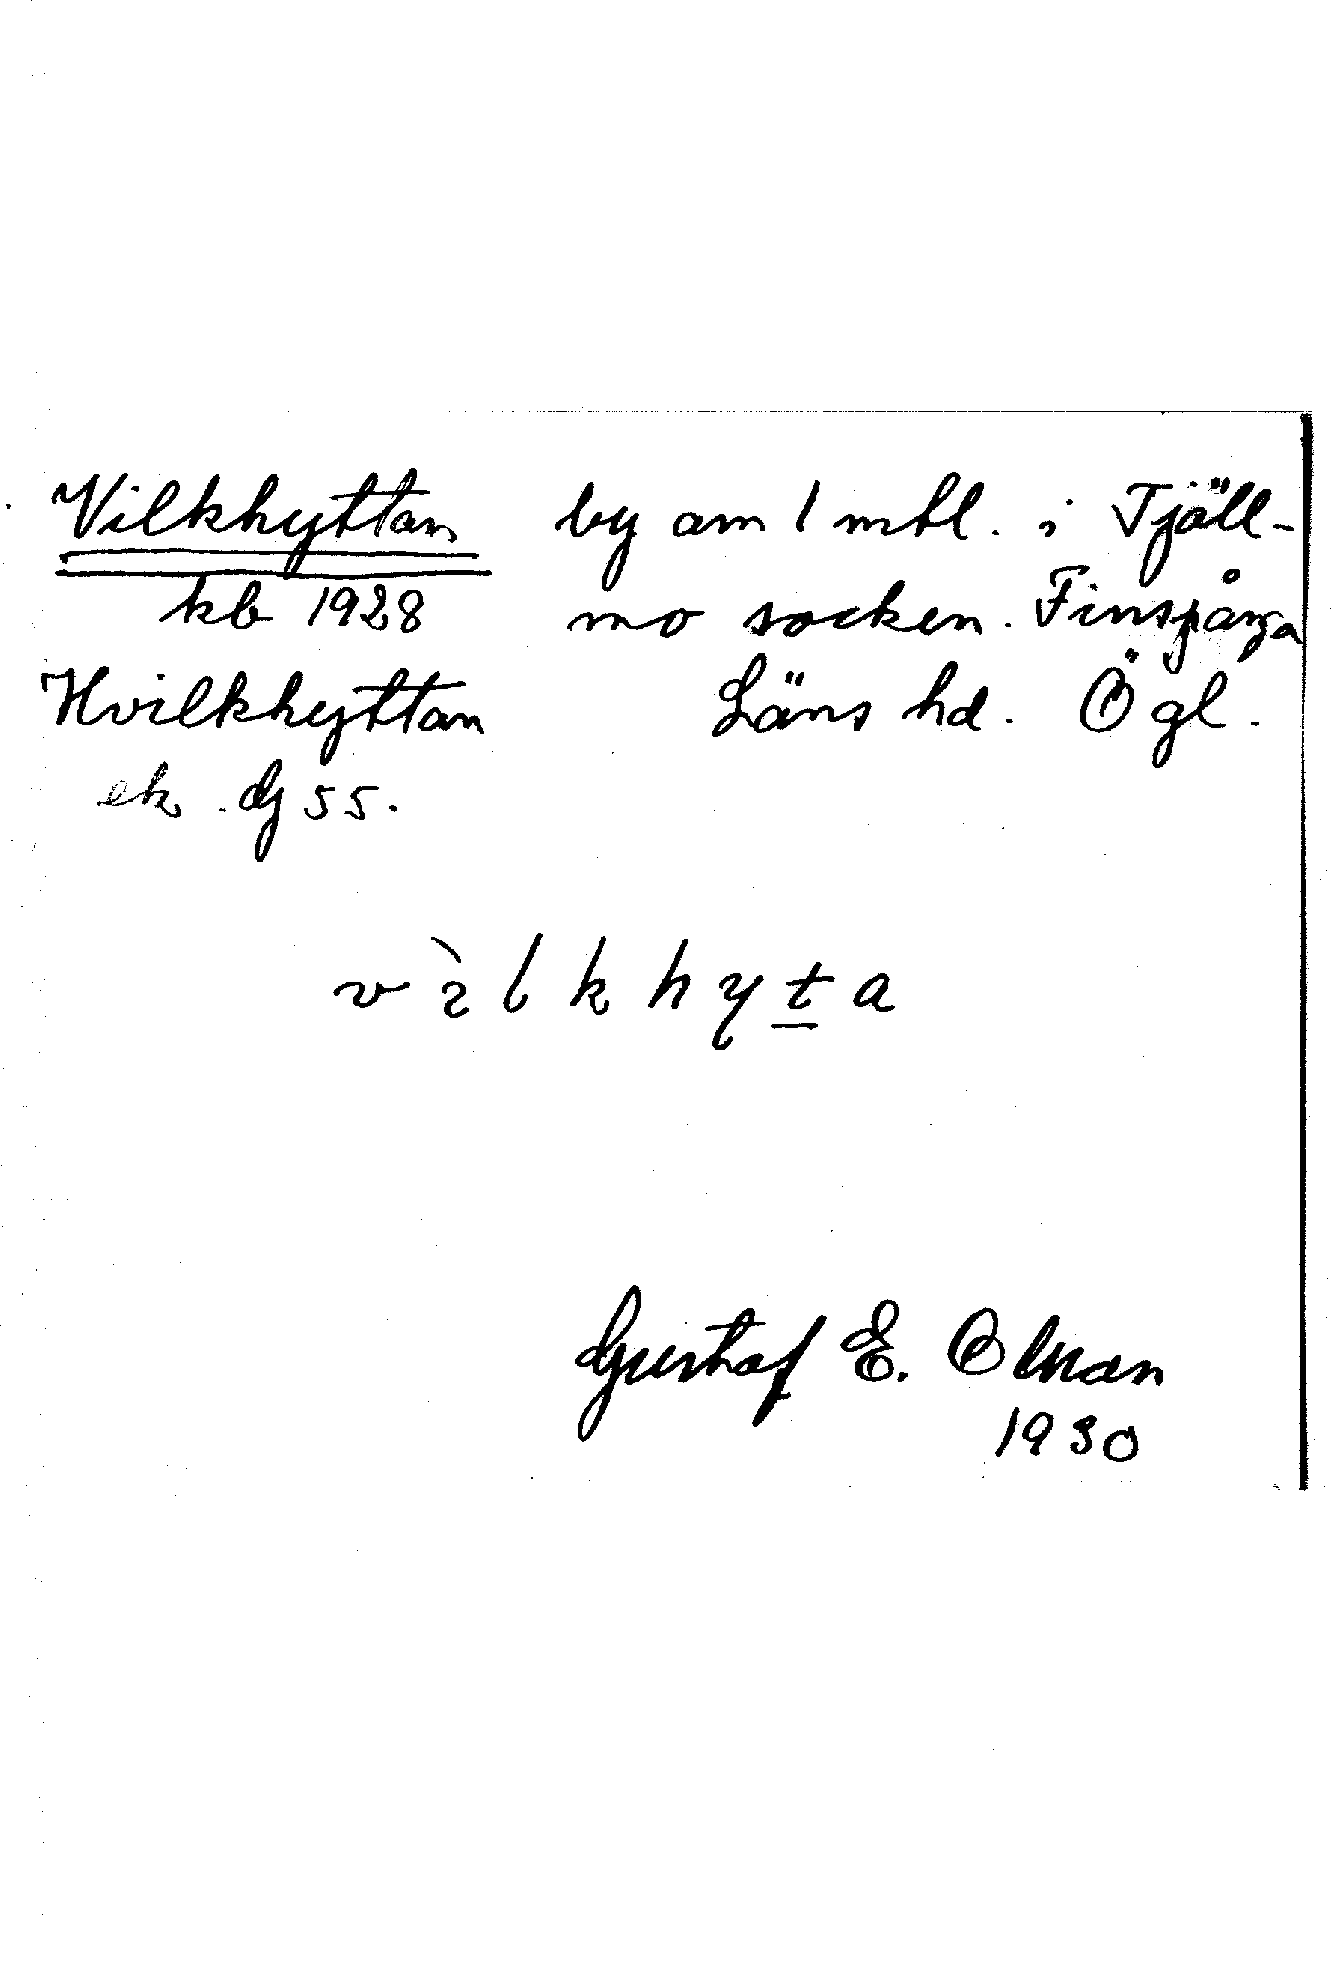 Vilkhyttan by om 1 mtl. i Tjäll-
kb 1928 mo socken. Finspånga
Hvilkhyttan Läns hd. Ögl.
ek. dj 55.
v ì l k h y t a
Gustaf E. Olman
1930